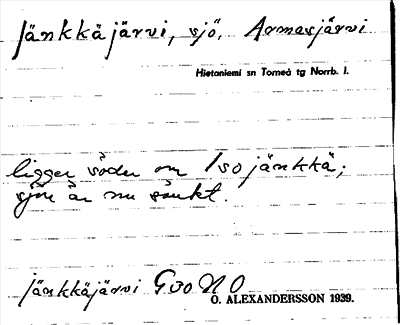 Jänkkäjärvi, sjö, Armasjärvi
Hietaniemi sn Torneå tg Norrb. l.
ligger söder om Isojänkkä;
sjön är nu sänkt.
jänkkäjärvi G30 NO
O. ALEXANDERSSON 1939.